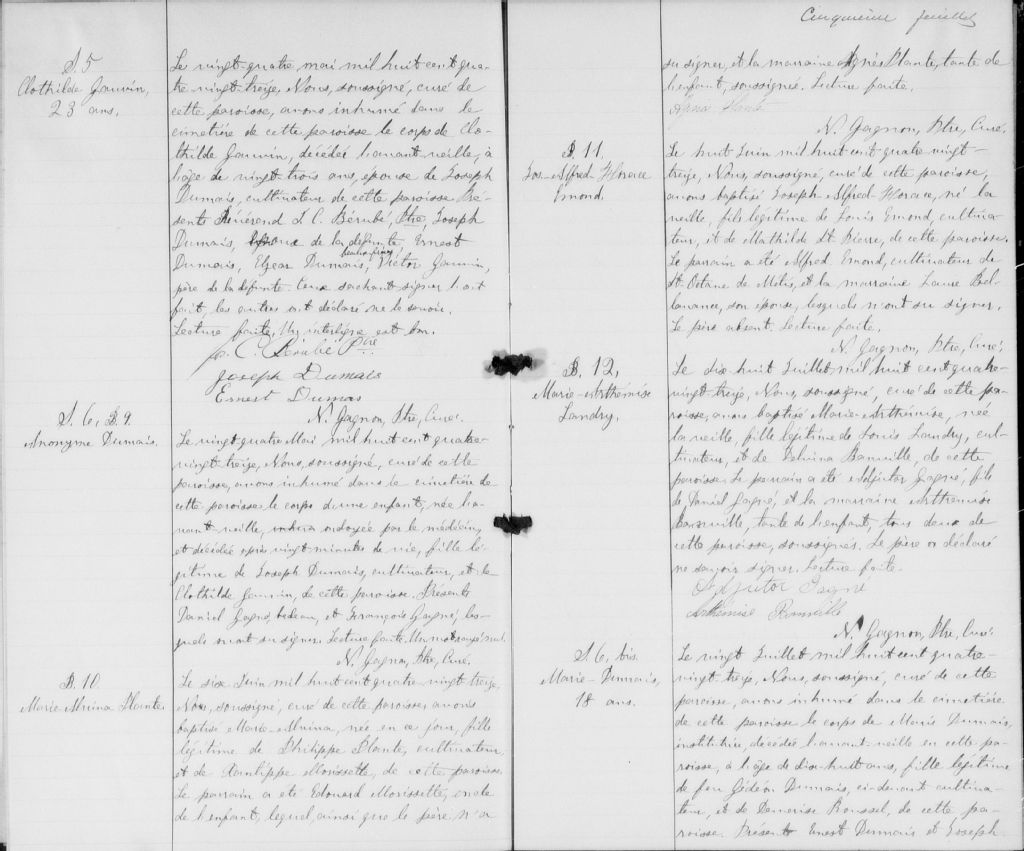 S. 5
Clothilde Gauvin,
23 ans.
Le vingt-quatre mai mil huit cent qua-
tre-vingt-treize, Nous, soussigné, curé de
cette paroisse, avons inhumé dans le
cimetière de cette paroisse le corps de Clo-
thilde Gauvin, décédée l'avant-veille, à
l'âge de vingt trois ans, épouse de Joseph
Dumais, cultivateur de cette paroisse. Pré-
sents Révérend J. C. Bérubé, Ptre, Joseph
Dumais, époux de la défunte, Ernest
Dumais, Elzear Dumais, Victor Gauvin,
père de la défunte. Ceux sachant signer l'ont
fait, les autres ont déclaré ne le savoir.
Lecture faite. Un interligne est bon.
J. C. Bérubé Ptre
Joseph Dumais
Ernest Dumais
N. Gagnon, Ptre, Curé.
S. 6, B. 9.
Anonyme Dumais.
Le vingt-quatre Mai mil huit cent quatre-
vingt-treize, Nous, soussigné, curé de cette
paroisse, avons inhumé dans le cimetière de
cette paroisse le corps d'une enfant, née l'a-
vant-veille, ondoyée par le médecin,
et décédée après vingt minutes de vie, fille lé-
gitime de Joseph Dumais, cultivateur, et de
Clothilde Gauvin, de cette paroisse. Présents
Daniel Gagné, bedeau, et François Gagné, les-
quels n'ont su signer. Lecture faite. Un mot rayé nul.
N. Gagnon, Ptre, Curé.
B. 10.
Marie Alvina Plante.
Le six Juin mil huit cent quatre-vingt-treize,
Nous, soussigné, curé de cette paroisse, avons
baptisé Marie Alvina, née en ce jour, fille
légitime de Philippe Plante, cultivateur,
et de Xantippe Morissette, de cette paroisse.
Le parrain a été Edouard Morissette, oncle
de l'enfant, lequel, ainsi que le père n'a
Cinquième feuillet
su signer, et la marraine Agnès Plante, tante de
l'enfant, soussignée. Lecture faite.
N. Gagnon, Ptre, Curé.
B. 11.
Jos. Alfred Horace
Emond.
Le huit Juin mil huit cent quatre vingt-
treize, Nous, soussigné, curé de cette paroisse,
avons baptisé Joseph Alfred Horace, né la
veille, fils légitime de Louis Emond, cultiva-
teur, et de Mathilde St. Pierre, de cette paroisse.
Le parrain a été Alfred Emond, cultivateur de
St. Octave de Métis, et la marraine Laure Bel-
lavance, son épouse, lesquels n'ont su signer.
Le père absent. Lecture faite.
N. Gagnon, Ptre, Curé.
B. 12,
Marie-Arthémise
Landry.
Le dix-huit Juillet mil huit cent quatre-
vingt-treize, Nous, soussigné, curé de cette pa-
roisse, avons baptisé Marie-Arthémise, née
la veille, fille légitime de Louis Landry, cul-
tivateur, et de Delvina Banville, de cette
paroisse. Le parrain a été Adjutor Gagné, fils
de Daniel Gagné, et la marraine Arthémise
Banville, tante de l'enfant, tous deux de
cette paroisse, soussignés. Le père a déclaré
ne savoir signer. Lecture faite.
Adjutor Gagné
Arthémise Banville
N. Gagnon, Ptre, Curé.
S. 6, bis.
Marie Dumais,
18 ans.
Le vingt Juillet mil huit cent quatre-
vingt-treize, Nous, soussigné, curé de cette
paroisse, avons inhumé dans le cimetière
de cette paroisse le corps de Marie Dumais,
institutrice, décédée l'avant-veille en cette pa-
roisse, à l'âge de dix-huit ans, fille légitime
de feu Gédéon Dumais, ci-devant cultiva-
teur, et de Demerise Roussel, de cette pa-
roisse. Présents Ernest Dumais et Joseph